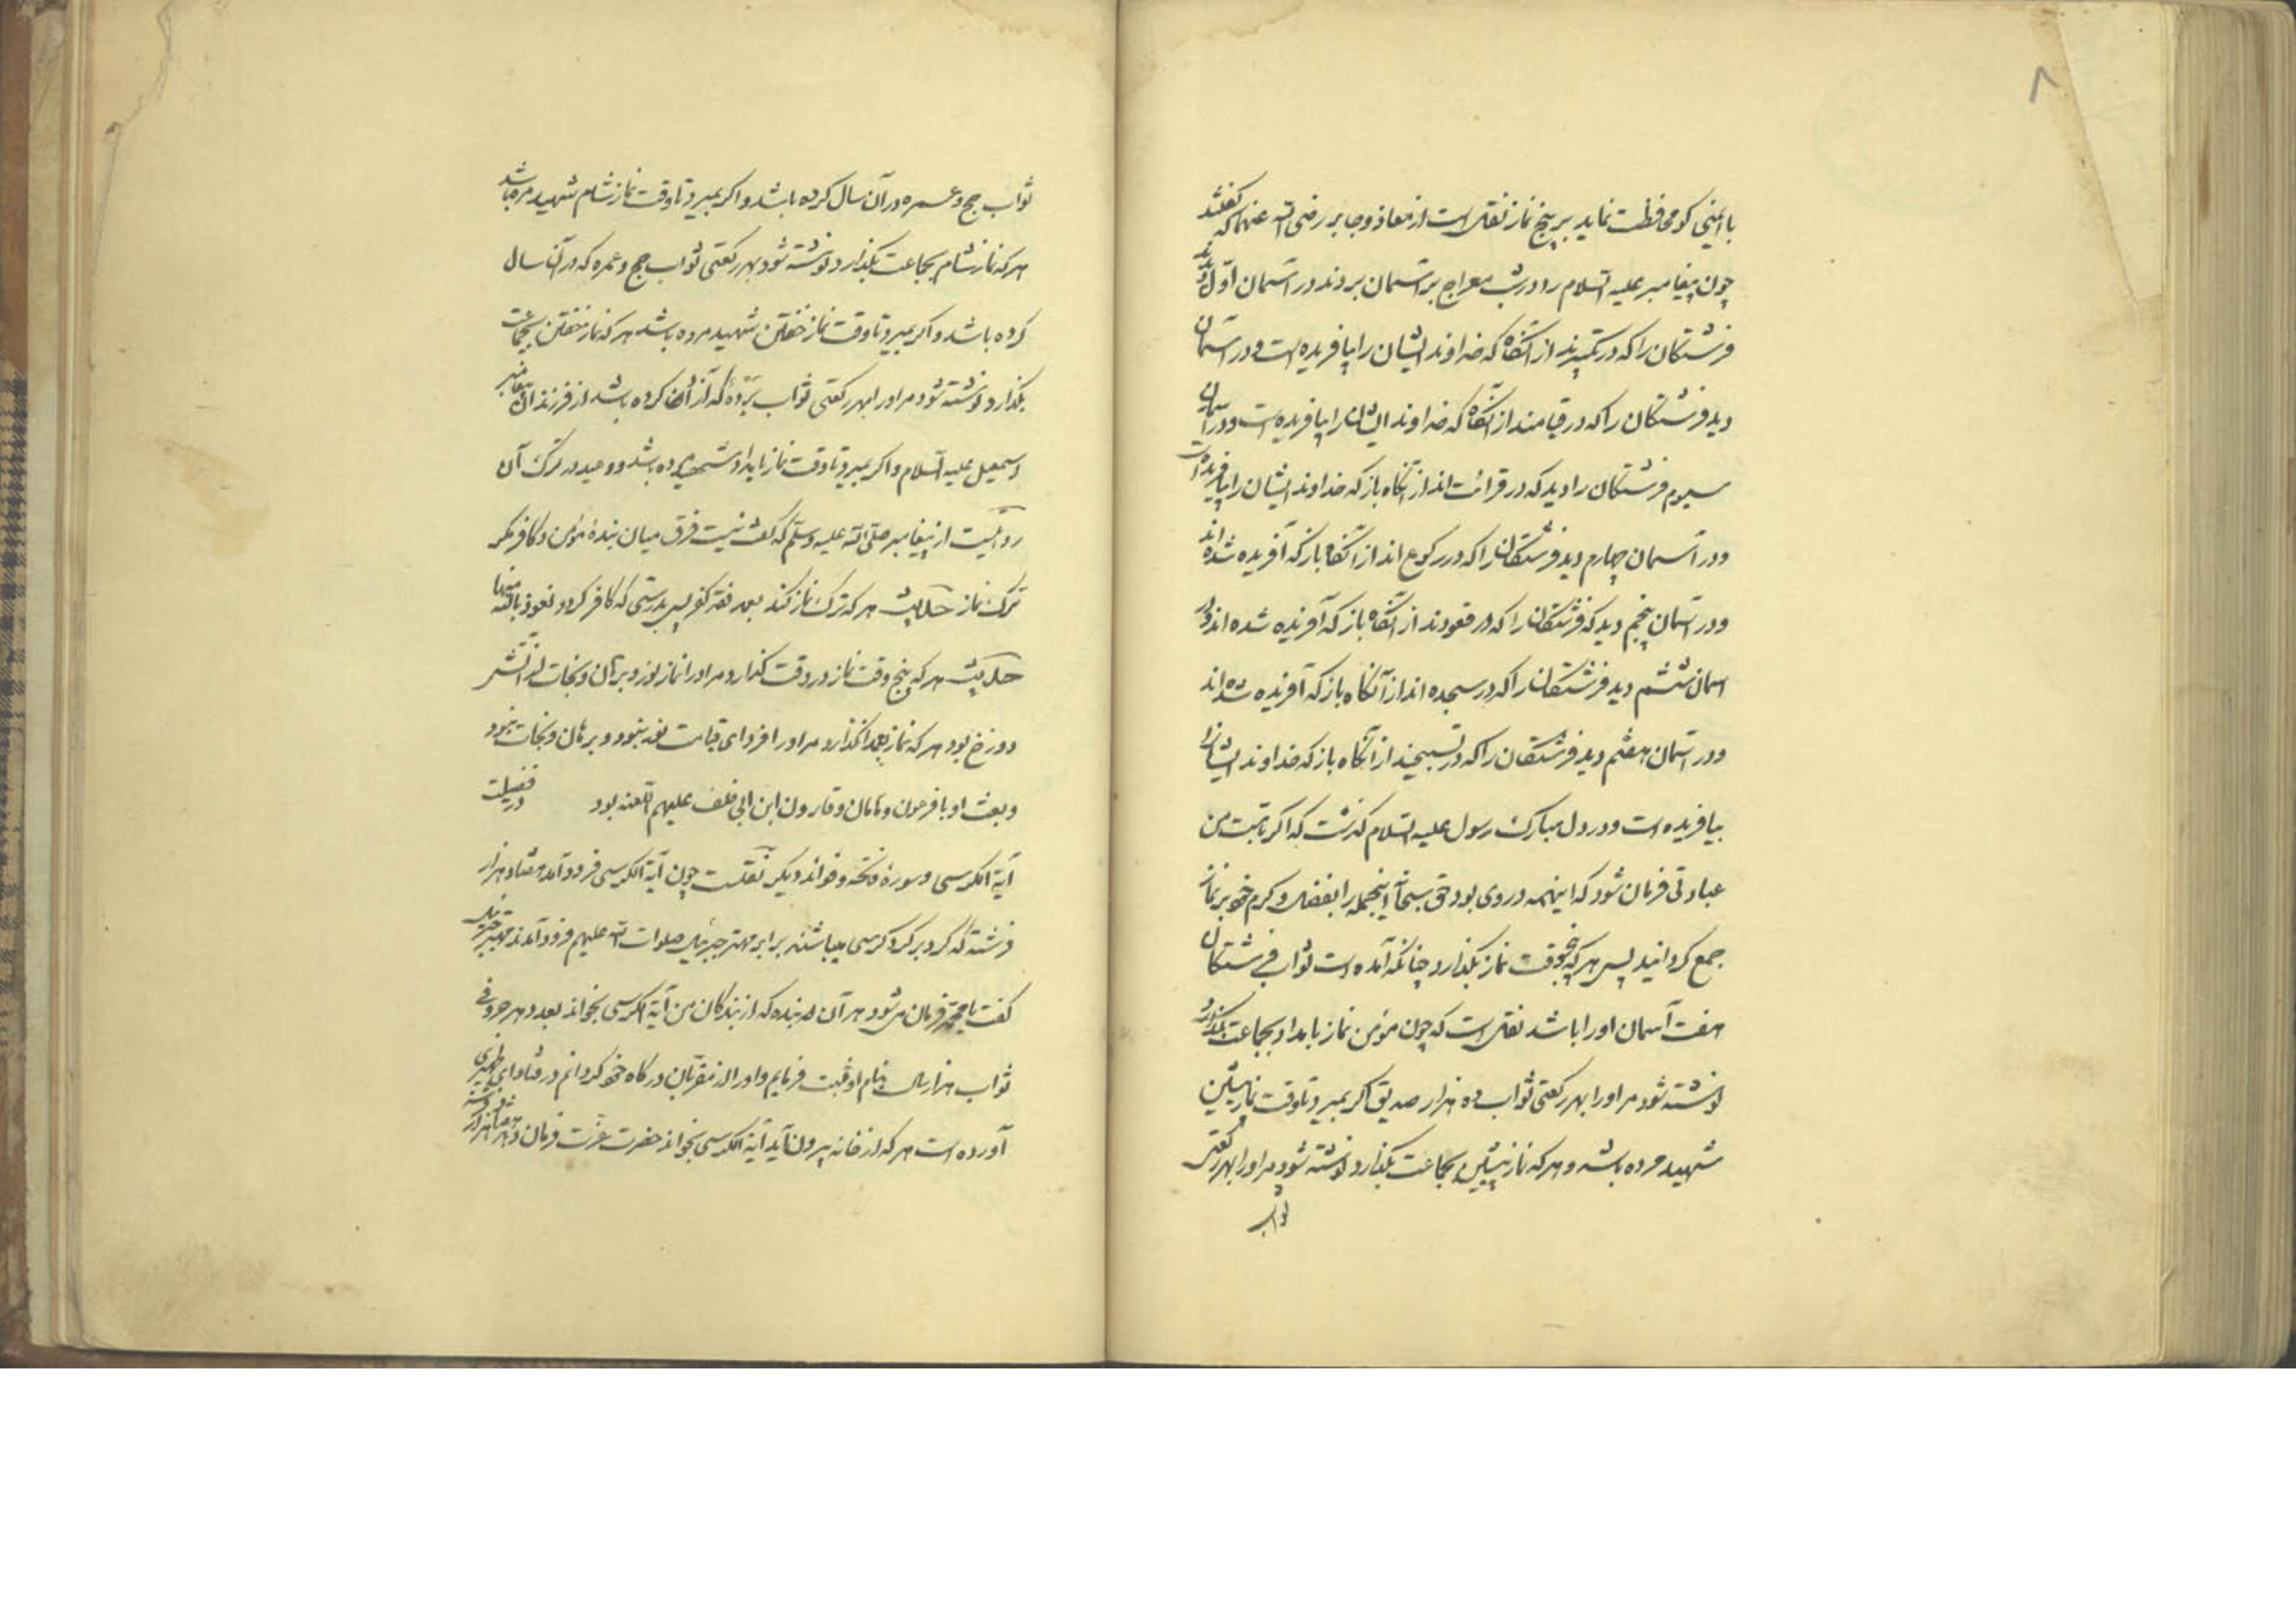 ۸
با ایمنی کو محافظت نماید بر پنج نماز نقل است از معاذ و جابر رضی الله عنهما که گفتند
چون پیغامبر علیه السلام را در شب معراج بر آسمان بردند در آسمان اول دید
فرشتگان را که در تکبیرند از آنگاه که خداوند ایشان را بیافریده است و در آسمان
دید فرشتگان را که در قیامند از آنگاه که خداوند ایشان را بیافریده است و در آسمان
سیوم فرشتگان را دید که در قرائت اند از آنگاه باز که خداوند ایشان را بیافریده است
و در آسمان چهارم دید فرشتگان را که در رکوع اند از آنگاه باز که آفریده شده اند
و در آسمان پنجم دید که فرشتگان را که در قعودند از آنگاه باز که آفریده شده اند و در
اسمان ششم دید فرشتگان را که در سجده اند از آنگاه باز که آفریده شده اند
و در آسمان هفتم دید فرشتگان را که در تسبیحند از آنگاه باز که خداوند ایشانرا
بیافریده است و در دل مبارک رسول علیه السلام گذشت که اگر بامت من
عبادتی فرمان شود که اینهمه در وی بود حق سبحانه اینجمله را بفضل و کرم خود بر نماز
جمع گردانید پس هر که پنجوقت نماز بگذارد چنانکه آمده است ثواب فرشتگان
هفت آسمان او را باشد نقل است که چون مؤمن نماز بامداد بجماعت بگذارد
نوشته شود مر او را بهر رکعتی ثواب ده هزار صدیق اگر بمیرد تا وقت نماز پیشین
شهید مرده باشد و هر که نماز پیشین بجماعت بگذارد نوشته شود مر او را بهر رکعتی
ثواب
ثواب حج و عمره در آن سال کرده باشد و اگر بمیرد تا وقت نماز شام شهید مرده باشد
هر که نماز شام بجماعت بگذارد نوشته شود بهر رکعتی ثواب حج و عمره که در آن سال
کرده باشد و اگر بمیرد تا وقت نماز خفتن شهید مرده باشد هر که نماز خفتن بجماعت
بگذارد نوشته شود مر او را بهر رکعتی ثواب بردۀ که آزاد کرده باشد از فرزندان پیغامبر
اسمعیل علیه السلام و اگر بمیرد تا وقت نماز بامداد شهید مرده باشد و وعید در ترک آن
روایتست از پیغامبر صلی الله علیه وسلم که گفت نیست فرق میان بندۀ مؤمن و کافر مگر
ترک نماز حکایت هر که ترک نماز کند بعمد فقد کفر پس بدرستی که کافر گردد نعوذ بالله منها
حکایت هر که پنج وقت نماز در وقت گذارد مر او را نماز نور و برهان و نجات از آتش
دوزخ بود هر که نماز بعمد نگذارد مر او را فردای قیامت نور نبود و برهان و نجات نبود
و بعث او با فرعون و هامان و قارون ابن ابی خلف علیهم اللعنه بود در فضیلت
آیة الکرسی و سورۀ فاتحه و فواید دیگر نقلست چون آیة الکرسی فرود آمد هفتاد هزار
فرشته که گرد بر گرد کرسی میباشند برابر مهتر جبرئیل صلوات الله علیهم فرود آمدند مهتر جبرئیل
گفت یا محمد فرمان می شود هر آن بنده که از بندگان من آیة الکرسی بخواند بعدد هر حروفی
ثواب هزار سال بنام او ثبت فرمایم و او را از مقربان درگاه خود گردانم در فتاوای ظهیری
آورده است هر که از خانه بیرون آید آیة الکرسی بخواند حضرت عزت فرمان دهد هفتاد هزار فرشته